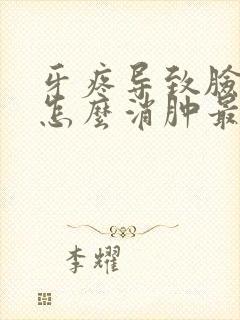 牙疼导致脸
怎麽消肿最
李耀